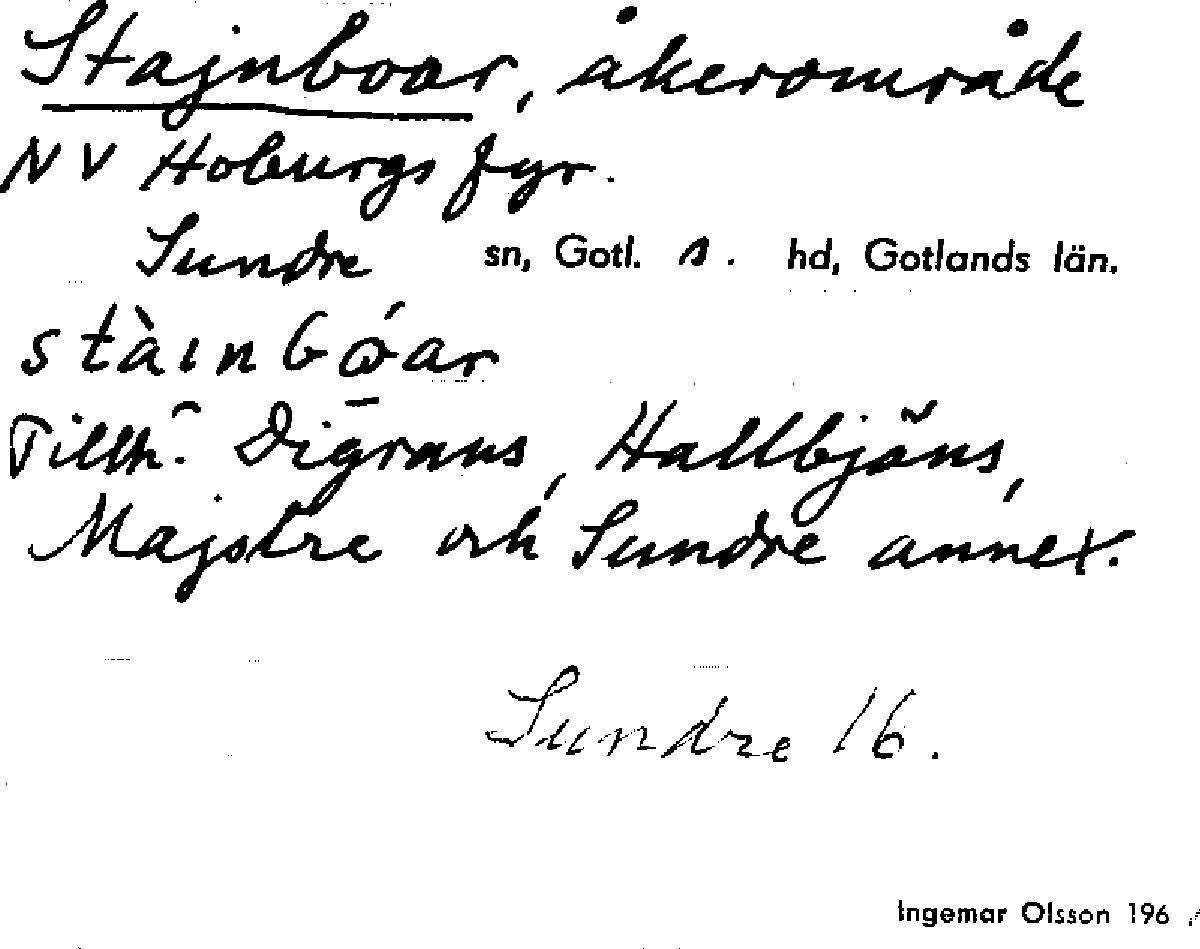 Stajnboar, åkerområde
NV Hoburgs fyr.
Sundre sn, Gotl. s. hd, Gotlands län.
Tillh. Digrans, Hallbjäns,
Majstre och Sundre annex.
Sundre 16.
Ingemar Olsson 196